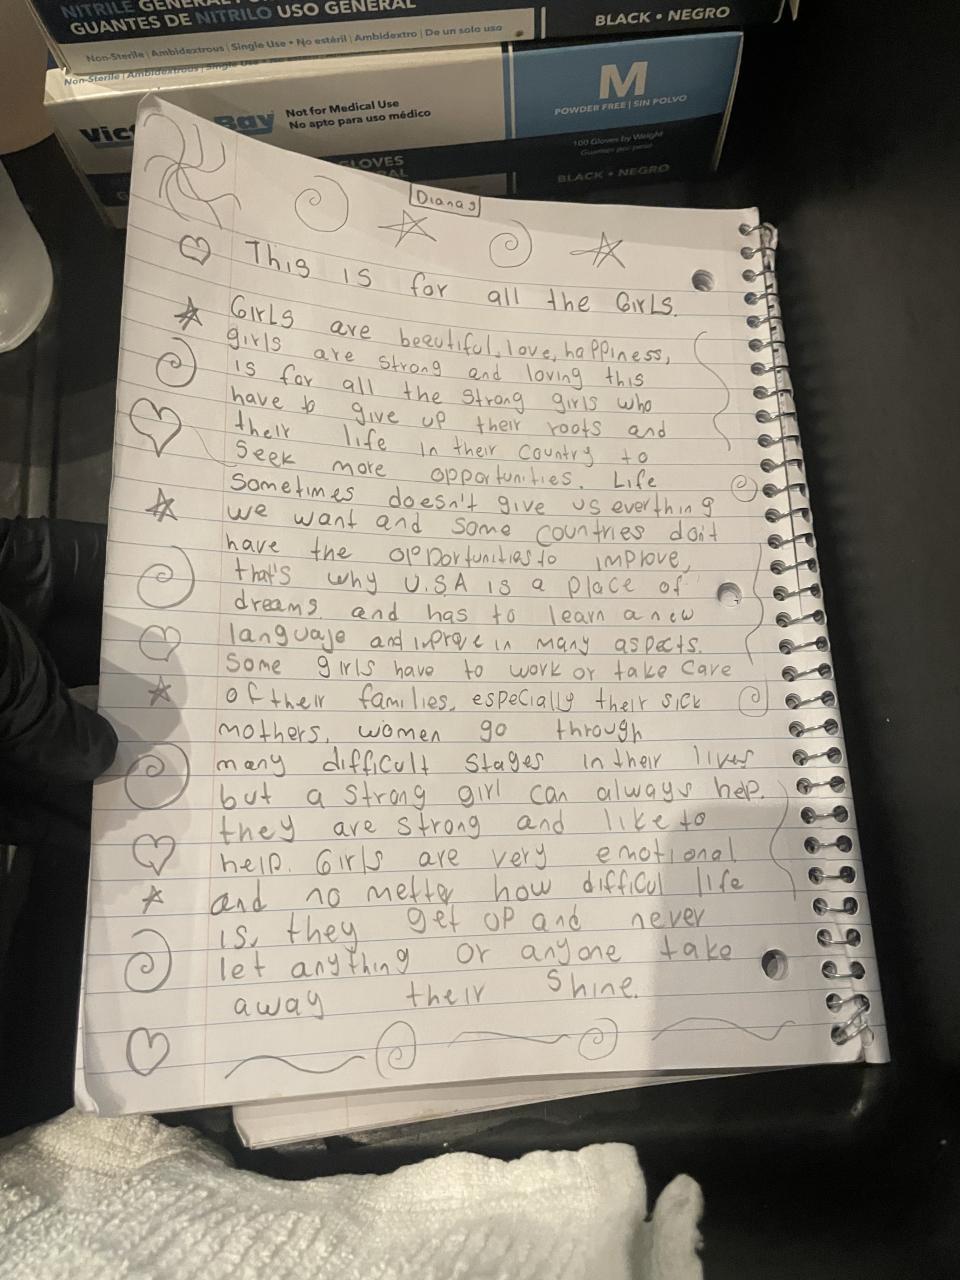 NITRILE GENERAL
GUANTES DE NITRILO USO GENERAL
BLACK • NEGRO
Non-Sterile | Ambidextrous | Single Use • No estéril | Ambidextro | De un solo uso
Non-Sterile | Ambidextrous | Single Use
Not for Medical Use
No apto para uso médico
Bay
M
POWDER FREE | SIN POLVO
100 Gloves by Weight
GLOVES
BLACK • NEGRO
Dianas
This is for all the GIRLS.
GIRLS are beautiful, love, happiness,
girls are strong and loving this
is for all the strong girls who
have to give up their roots and
their life in their country to
seek more opportunities. Life
sometimes doesn't give us everthing
we want and some countries don't
have the opportunities to improve,
that's why U.S.A is a place of
dreams. and has to learn a new
languaje and improve in many aspects.
Some girls have to work or take care
of their families, especially their sick
mothers, women go through
many difficult stages in their lives
but a strong girl can always hep.
they are strong and like to
help. Girls are very emotional
and no metter how difficul life
is, they get up and never
let anything or anyone take
away their shine.